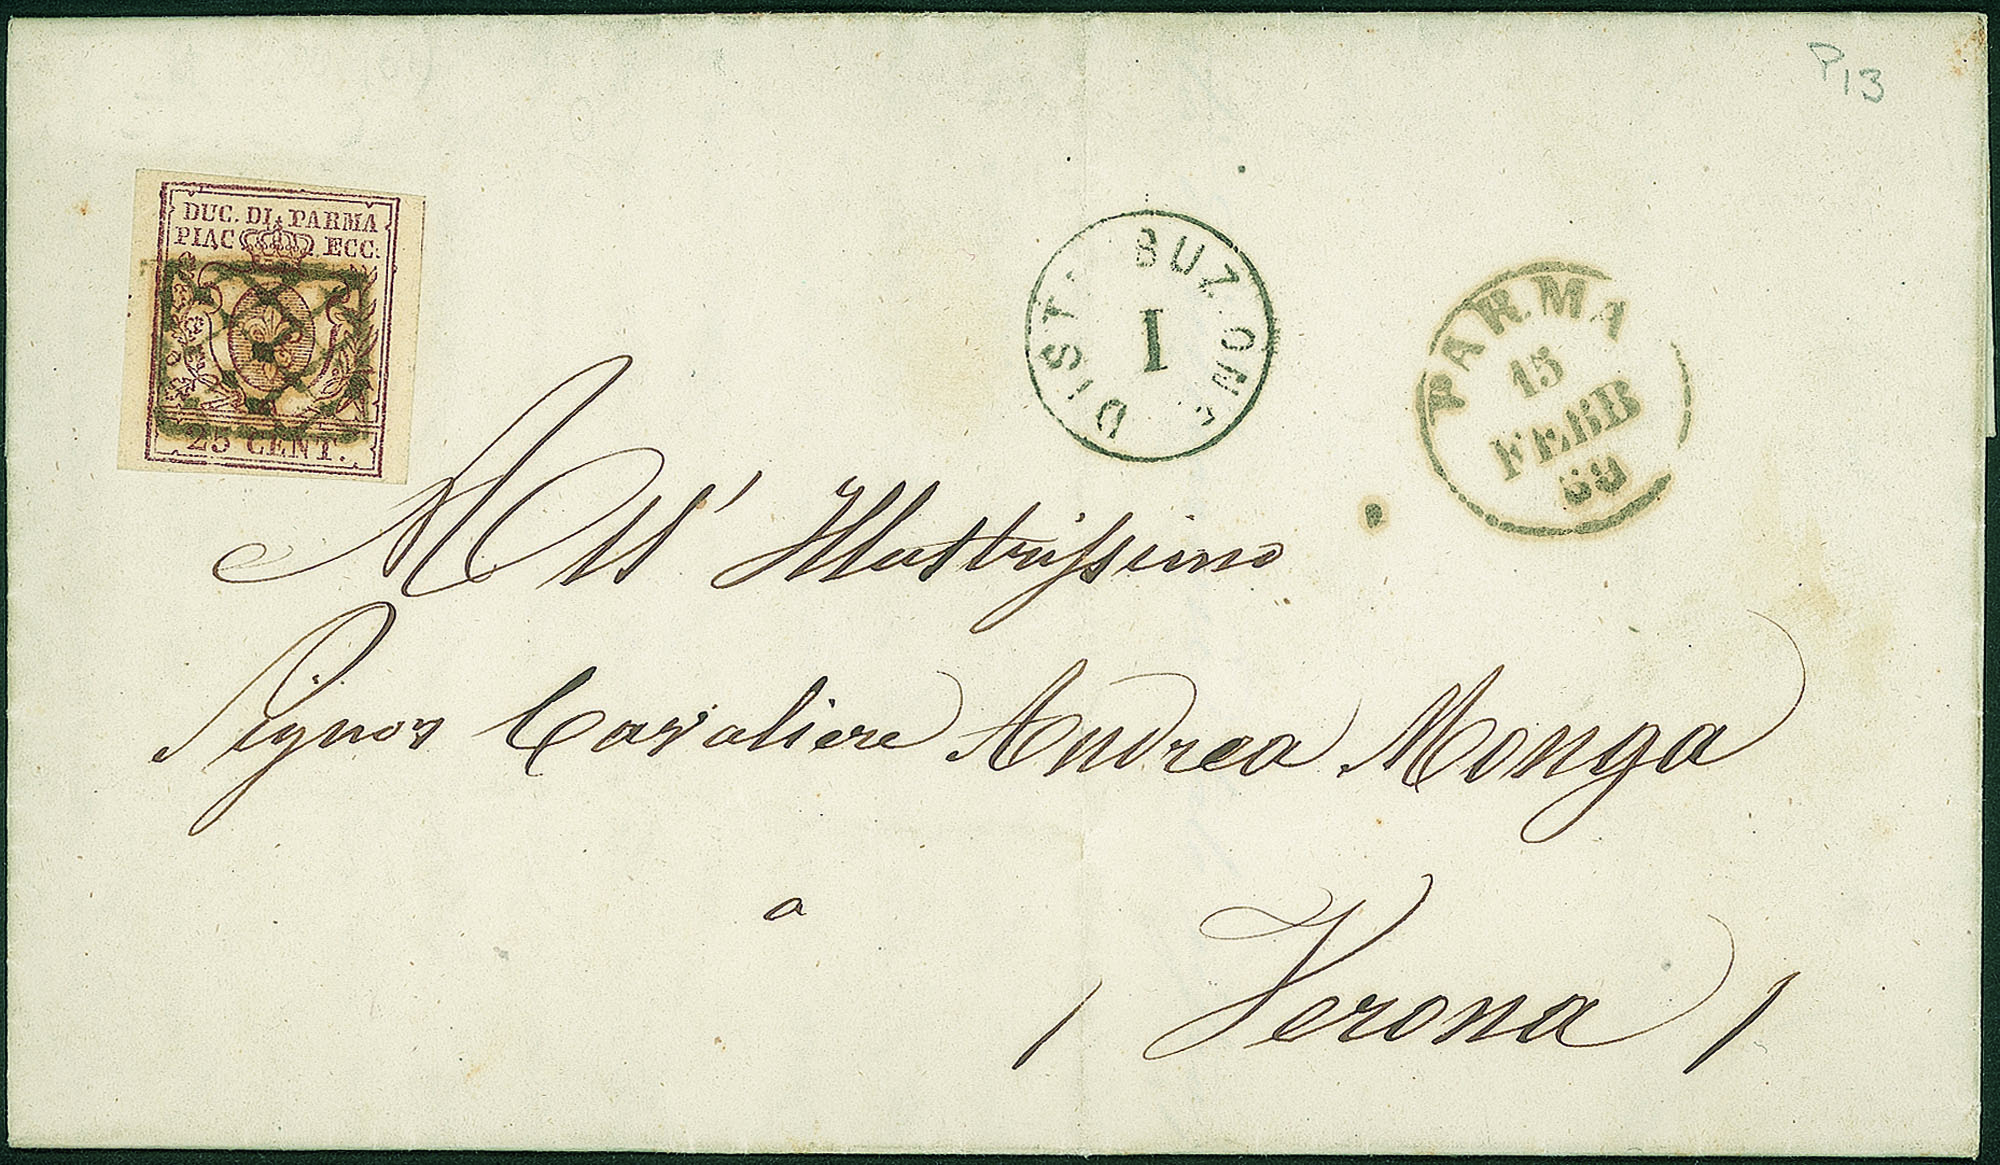 P13
DUC. DI PARMA
PIAC ECC:
25 CENT.
DISTR BUZIONE
I
PARMA
15
FEBB
59
All' Illustrissimo
Signor Cavaliere Andrea Monga
a
Verona